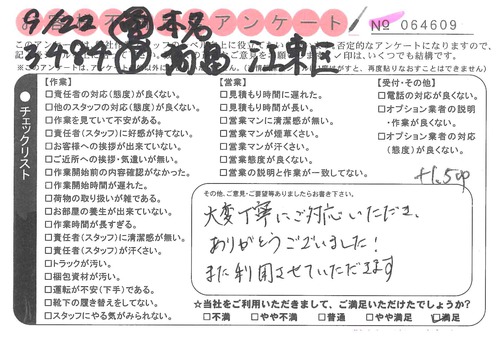 9/22 本名
アンケート
№ 064609
3484 江東区
チェックリスト
【作業】
□責任者の対応(態度)が良くない。
□他のスタッフの対応(態度)が良くない。
□作業を見ていて不安がある。
□責任者(スタッフ)に好感が持てない。
□お客様への挨拶が出来ていない。
□ご近所への挨拶・気遣いが無い。
□作業開始前の内容確認がなかった。
□作業開始時間が遅れた。
□荷物の取り扱いが雑である。
□お部屋の養生が出来ていない。
□作業時間が長すぎる。
□責任者(スタッフ)に清潔感が無い。
□責任者(スタッフ)が汗くさい。
□トラックが汚い。
□梱包資材が汚い。
□運転が不安(下手)である。
□靴下の履き替えをしてない。
□スタッフにやる気がみられない。
【営業】
□見積もり時間に遅れた。
□見積もり時間が長い。
□営業マンに清潔感が無い。
□営業マンが煙草くさい。
□営業マンが汗くさい。
□営業態度が良くない。
□営業の説明と作業が一致してない。
【受付・その他】
□電話の対応が良くない。
□オプション業者の説明
・作業が良くない。
□オプション業者の対応
(態度)が良くない。
その他、ご意見・ご要望等ありましたらお書き下さい。
大変丁寧にご対応いただき、
ありがとうございました!
また利用させていただきます
☆当社をご利用いただきまして、ご満足いただけてでしょうか?
□不満 □やや不満 □普通 □やや満足 □満足